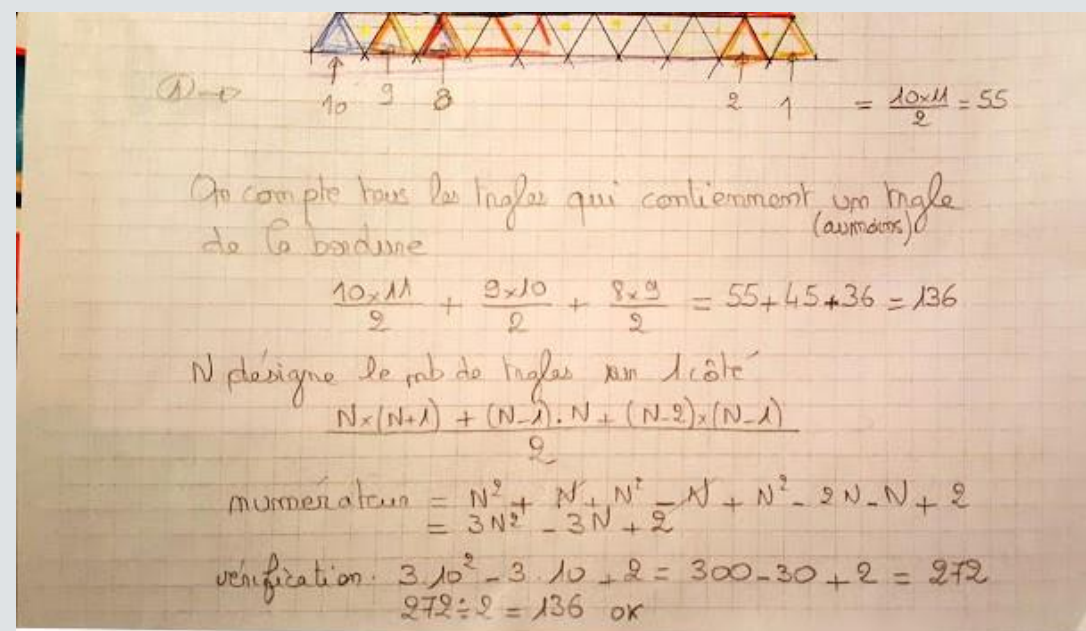 10 9 8 2 1 = 10x11/2 = 55
On compte tous les trgles qui contiennent un trgle
(au moins)
de la bordure
10x11/2 + 9x10/2 + 8x9/2 = 55+45+36 = 136
N désigne le nb de trgles sur 1 côté
Nx(N+1) + (N-1).N + (N-2)x(N-1)
2
numérateur = N² + N + N² - N + N² - 2N - N + 2
= 3N² - 3N + 2
vérification. 3.10² - 3.10 + 2 = 300-30 + 2 = 272
272÷2 = 136 OK